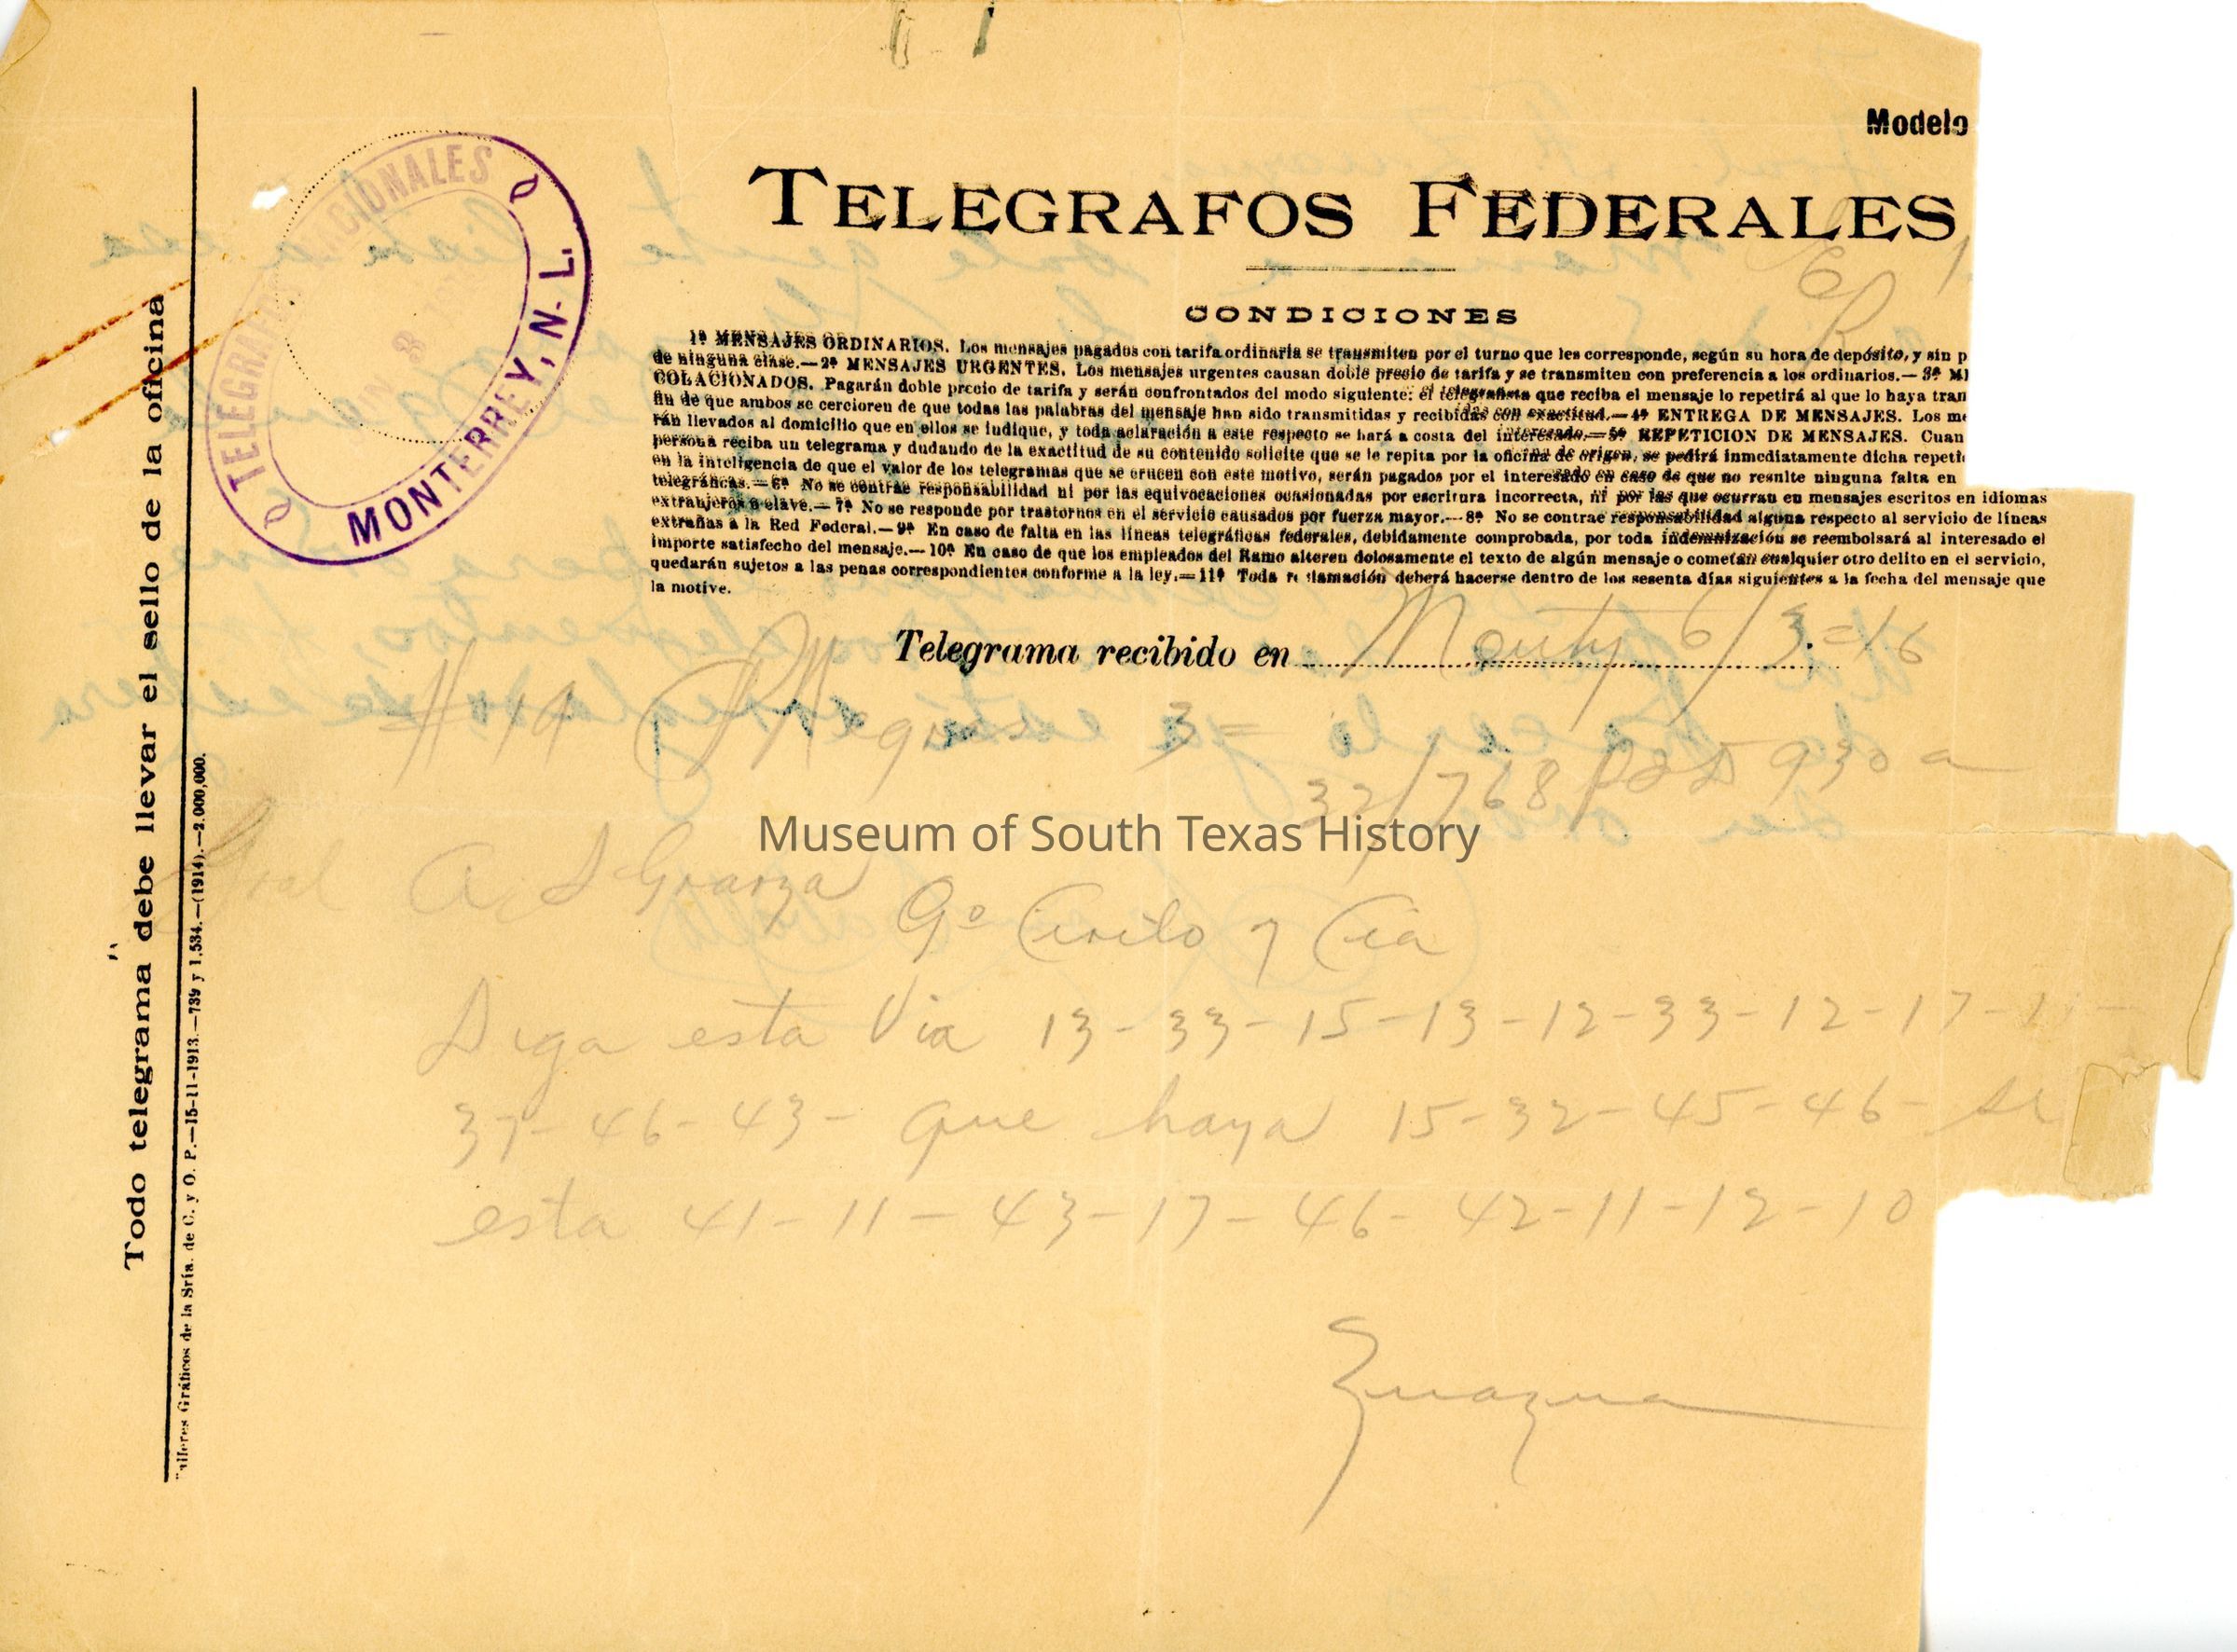 Modelo
TELEGRAFOS FEDERALES
CONDICIONES
1ª MENSAJES ORDINARIOS. Los mensajes pagados con tarifa ordinaria se transmiten por el turno que les corresponde, según su hora de depósito, y sin p
de ninguna clase.—2ª MENSAJES URGENTES. Los mensajes urgentes causan doble precio de tarifa y se transmiten con preferencia a los ordinarios.—3ª
COLACIONADOS. Pagarán doble precio de tarifa y serán confrontados del modo siguiente: el telegrafista que reciba el mensaje lo repetirá al que lo haya tran
fin de que ambos se cercioren de que todas las palabras del mensaje han sido transmitidas y recibidas con exactitud.—4ª ENTREGA DE MENSAJES. Los
rán llevados al domicilio que en ellos se indique, y toda aclaración a este respecto se hará a costa del interesado.—5ª REPETICION DE MENSAJES. Cuan
persona reciba un telegrama y dudando de la exactitud de su contenido solicite que se le repita por la oficina de origen, se pedirá inmediatamente dicha repeti
en la inteligencia de que el valor de los telegramas que se crucen con este motivo, serán pagados por el interesado en caso de que no resulte ninguna falta en
telegráficas.—6ª No se contrae responsabilidad ni por las equivocaciones ocasionadas por escritura incorrecta, ni por las que ocurran en mensajes escritos en idiomas
extranjeros o clave.—7ª No se responde por trastornos en el servicio causados por fuerza mayor.—8ª No se contrae responsabilidad alguna respecto al servicio de líneas
extrañas a la Red Federal.—9ª En caso de falta en las líneas telegráficas federales, debidamente comprobada, por toda indemnización se reembolsará al interesado el
importe satisfecho del mensaje.—10ª En caso de que los empleados del Ramo alteren dolosamente el texto de algún mensaje o cometan cualquier otro delito en el servicio,
quedarán sujetos a las penas correspondientes conforme a la ley.—11ª Toda reclamación deberá hacerse dentro de los sesenta días siguientes a la fecha del mensaje que
la motive.
Telegrama recibido en Monty 6/3=16
32/768 pd D 930 a
Gral A. D Guarza
9º Cirilo y Cia
Diga esta Via 13-33-15-13-12-33-12-17-
37-46-43- que haya 15-32-45-46- se
esta 41-11-43-17-46-42-11-12-10
Zuazua
TELEGRAFOS NACIONALES
MONTERREY, N. L.
Todo telegrama debe llevar el sello de la oficina
Talleres Gráficos de la Sría. de C. y O. P.—15-11-1913.—739 y 1,534.—(1914).—2.000,000.
Museum of South Texas History